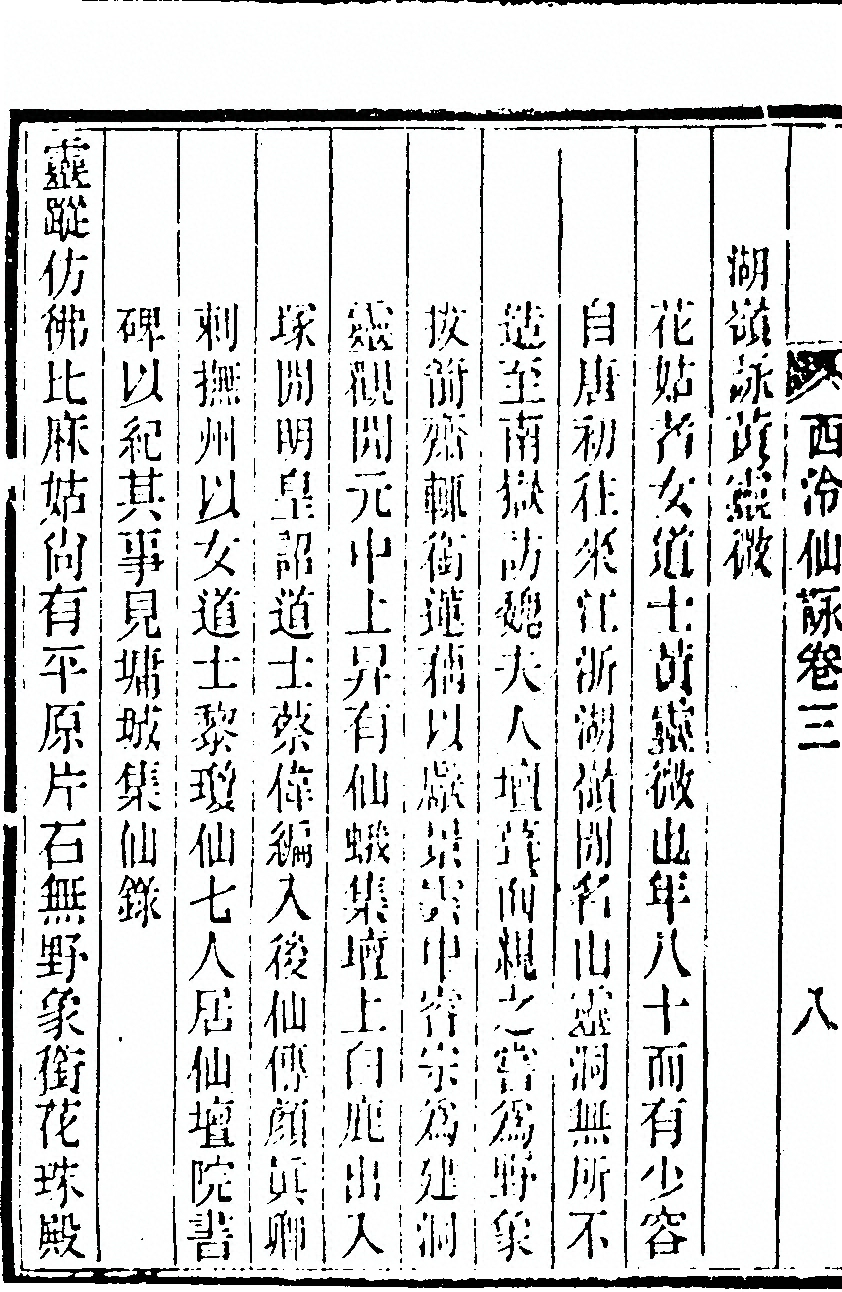 西泠仙詠卷三 八
湖嶺詠黃靈微
花姑者女道士黃靈微也年八十而有少容
自唐初往來江浙湖嶺間名山靈洞無所不
造至南嶽訪魏夫人壇葺而之嘗為野象
拔箭齋輒銜蓮藕以獻景雲中睿宗為建洞
靈觀開元中上昇有仙蛾集壇上白鹿出入
塚開明皇詔道士蔡偉編入後仙傳顏真卿
刺撫州以女道士黎瓊仙七人居仙壇院書
碑以紀其事見墉城集仙錄
靈蹤仿彿比麻姑尚有平原片石無野象銜花珠殿